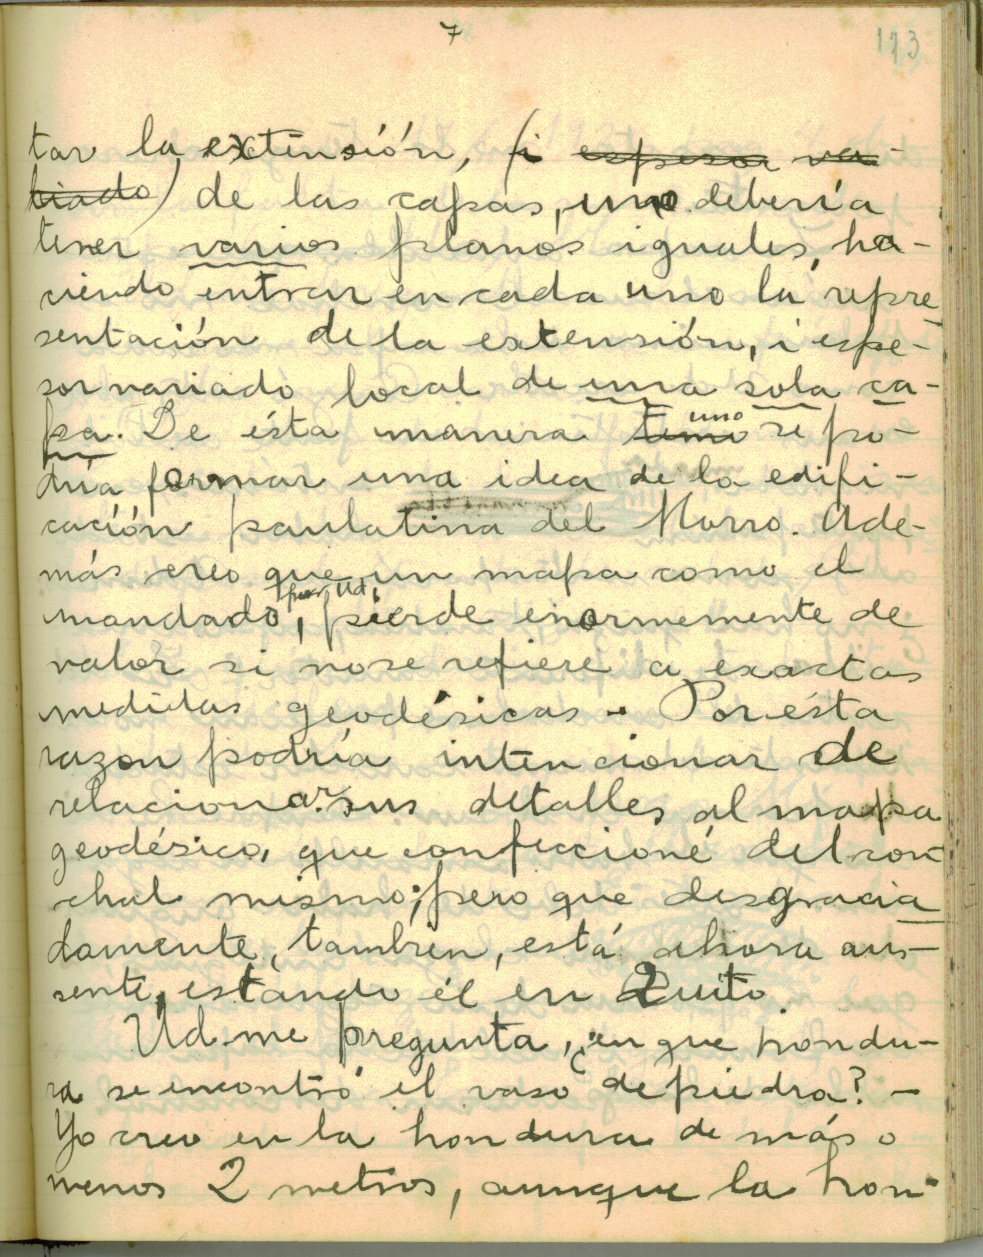 7
113
tar la extensión, (i espesor va-
riado) de las capas, uno debería
tener varios planos iguales, ha-
ciendo entrar en cada uno la repre-
sentación de la extensión, i espe-
sor variado local de una sola ca-
pa. De ésta manera uno se po-
dría formar una idea de la edifi-
cación paulatina del Morro. Ade-
más creo que un mapa como el
mandado por Ud., pierde enormemente de
valor si no se refiere a exactas
medidas geodésicas. Por ésta
razon podría intencionar de
relacionar sus detalles al mapa
geodésico, que confeccioné del con-
chal mismo; pero que desgracia-
damente, tambien, está ahora au-
sente, estando él en Quito
Ud. me pregunta, ¿en que hondu-
ra se encontró el vaso de piedra? -
Yo creo en la hondura de más o
menos 2 metros, aunque la hon-